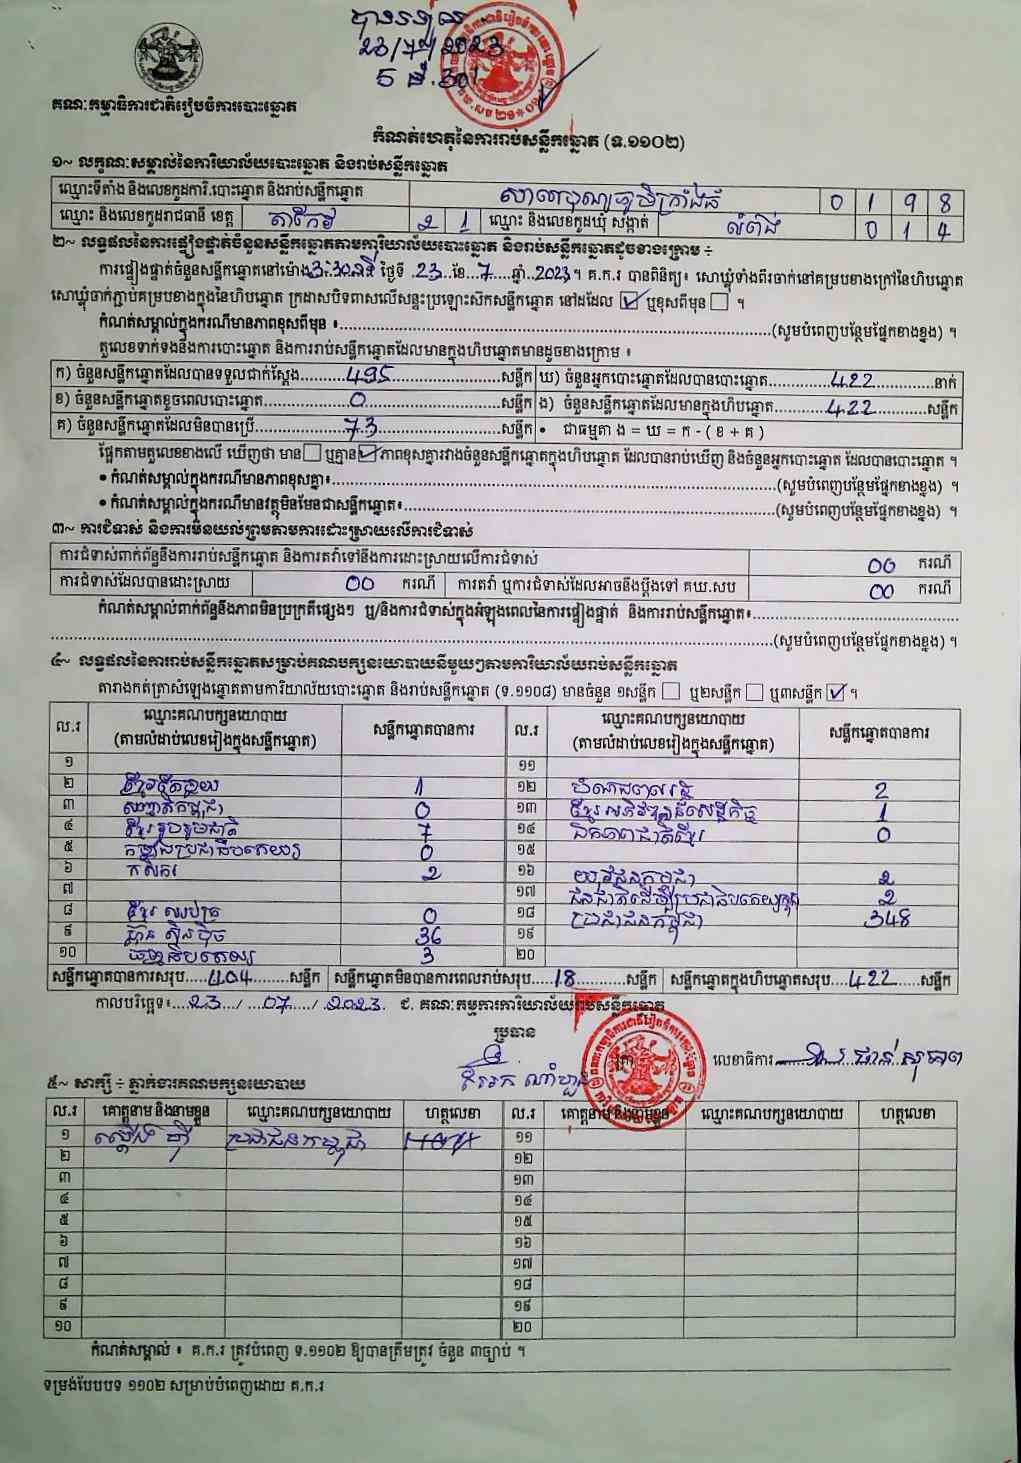 បានទទួល
23/7/2023
5 ម៉. 30
គណៈកម្មាធិការជាតិរៀបចំការបោះឆ្នោត
កំណត់ហេតុនៃការរាប់សន្លឹកឆ្នោត (ទ.១១០២)
១~ លក្ខណៈសម្គាល់នៃការិយាល័យបោះឆ្នោត និងរាប់សន្លឹកឆ្នោត
ឈ្មោះទីតាំង និងលេខកូដការិ.បោះឆ្នោត និងរាប់សន្លឹកឆ្នោត សាលាបុណ្យភូមិក្រាំងធំ 0 1 9 8
ឈ្មោះ និងលេខកូដរាជធានី ខេត្ត តាកែវ 2 1 ឈ្មោះ និងលេខកូដឃុំ សង្កាត់ លំពង់ 0 1 4
២~ លទ្ធផលនៃការផ្ទៀងផ្ទាត់ចំនួនសន្លឹកឆ្នោតតាមការិយាល័យបោះឆ្នោត និងរាប់សន្លឹកឆ្នោតដូចខាងក្រោម ÷
ការផ្ទៀងផ្ទាត់ចំនួនសន្លឹកឆ្នោតនៅម៉ោង 3:30នាទី ថ្ងៃទី .23.ខែ.7.ឆ្នាំ.2023។ គ.ក.រ បានពិនិត្យ៖ សោឃ្លុំទាំងពីរចាក់នៅគម្របខាងក្រៅនៃហិបឆ្នោត
សោឃ្លុំចាក់ភ្ជាប់គម្របខាងក្នុងនៃហិបឆ្នោត ក្រដាសបិទពាសលើសន្ទះប្រឡោះសឹកសន្លឹកឆ្នោត នៅដដែល ☑ ឬខុសពីមុន ☐ ។
កំណត់សម្គាល់ក្នុងករណីមានភាពខុសពីមុន ៖......(សូមបំពេញបន្ថែមផ្នែកខាងខ្នង) ។
តួលេខទាក់ទងនឹងការបោះឆ្នោត និងការរាប់សន្លឹកឆ្នោតដែលមានក្នុងហិបឆ្នោតមានដូចខាងក្រោម ៖
ក) ចំនួនសន្លឹកឆ្នោតដែលបានទទួលជាក់ស្តែង.....495.....សន្លឹក ឃ) ចំនួនអ្នកបោះឆ្នោតដែលបានបោះឆ្នោត.....422.....នាក់
ខ) ចំនួនសន្លឹកឆ្នោតខូចពេលបោះឆ្នោត.....0.....សន្លឹក ង) ចំនួនសន្លឹកឆ្នោតដែលមានក្នុងហិបឆ្នោត.....422.....សន្លឹក
គ) ចំនួនសន្លឹកឆ្នោតដែលមិនបានប្រើ.....73.....សន្លឹក • ជាធម្មតា ង = ឃ = ក - ( ខ + គ )
ផ្អែកតាមតួលេខខាងលើ ឃើញថា មាន ☐ ឬគ្មាន ☑ ភាពខុសគ្នារវាងចំនួនសន្លឹកឆ្នោតក្នុងហិបឆ្នោត ដែលបានរាប់ឃើញ និងចំនួនអ្នកបោះឆ្នោត ដែលបានបោះឆ្នោត ។
• កំណត់សម្គាល់ក្នុងករណីមានភាពខុសគ្នា៖......(សូមបំពេញបន្ថែមផ្នែកខាងខ្នង) ។
• កំណត់សម្គាល់ក្នុងករណីមានវត្ថុមិនមែនជាសន្លឹកឆ្នោត៖......(សូមបំពេញបន្ថែមផ្នែកខាងខ្នង) ។
៣~ ការជំទាស់ និងការមិនយល់ព្រមតាមការដោះស្រាយលើការជំទាស់
ការជំទាស់ពាក់ព័ន្ធនឹងការរាប់សន្លឹកឆ្នោត និងការតវ៉ាទៅនឹងការដោះស្រាយលើការជំទាស់ 00 ករណី
ការជំទាស់ដែលបានដោះស្រាយ 00 ករណី ការតវ៉ា ឬការជំទាស់ដែលអាចនឹងប្តឹងទៅ គឃ.សប 00 ករណី
កំណត់សម្គាល់ពាក់ព័ន្ធនឹងភាពមិនប្រក្រតីផ្សេងៗ ឬ/និងការជំទាស់ក្នុងអំឡុងពេលនៃការផ្ទៀងផ្ទាត់ និងការរាប់សន្លឹកឆ្នោត៖......
......(សូមបំពេញបន្ថែមផ្នែកខាងខ្នង) ។
៤~ លទ្ធផលនៃការរាប់សន្លឹកឆ្នោតសម្រាប់គណបក្សនយោបាយនីមួយៗតាមការិយាល័យរាប់សន្លឹកឆ្នោត
តារាងកត់ត្រាសំឡេងឆ្នោតតាមការិយាល័យបោះឆ្នោត និងរាប់សន្លឹកឆ្នោត (ទ.១១០៨) មានចំនួន ១សន្លឹក ☐ ឬ២សន្លឹក ☐ ឬ៣សន្លឹក ☑ ។
ល.រ ឈ្មោះគណបក្សនយោបាយ (តាមលំដាប់លេខរៀងក្នុងសន្លឹកឆ្នោត) សន្លឹកឆ្នោតបានការ ល.រ ឈ្មោះគណបក្សនយោបាយ (តាមលំដាប់លេខរៀងក្នុងសន្លឹកឆ្នោត) សន្លឹកឆ្នោតបានការ
១ ១១
២ 1 ១២ សំណាជពលរដ្ឋ 2
៣ 0 ១៣ ខ្មែរអភិវឌ្ឍន៍សេដ្ឋកិច្ច 1
៤ ខ្មែររួបរួមជាតិ 7 ១៤ ឯកភាពជាតិខ្មែរ 0
៥ កម្លាំងប្រជាធិបតេយ្យ 0 ១៥
៦ កសិករ 2 ១៦ យុវជនកម្ពុជា 2
៧ ១៧ ជនជាតិដើម្បីប្រជាធិបតេយ្យកម្ពុ 2
៨ ខ្មែរ 0 ១៨ ប្រជាជនកម្ពុជា 348
៩ ហ៊្វុនស៊ិនប៉ិច 36 ១៩
១០ ធម្មាធិបតេយ្យ 3 ២០
សន្លឹកឆ្នោតបានការសរុប.....404.....សន្លឹក សន្លឹកឆ្នោតមិនបានការពេលរាប់សរុប.....18.....សន្លឹក សន្លឹកឆ្នោតក្នុងហិបឆ្នោតសរុប.....422.....សន្លឹក
កាលបរិច្ឆេទ៖.....23..../....07..../..2023. ជ. គណៈកម្មការការិយាល័យរាប់សន្លឹកឆ្នោត
ប្រធាន
លេខាធិការ ផាន់ សុផាព
៥~ សាក្សី ÷ ភ្នាក់ងារគណបក្សនយោបាយ
ល.រ គោត្តនាម និងនាមខ្លួន ឈ្មោះគណបក្សនយោបាយ ហត្ថលេខា ល.រ គោត្តនាម និងនាមខ្លួន ឈ្មោះគណបក្សនយោបាយ ហត្ថលេខា
១ ប្រជាជនកម្ពុជា ១១
២ ១២
៣ ១៣
៤ ១៤
៥ ១៥
៦ ១៦
៧ ១៧
៨ ១៨
៩ ១៩
១០ ២០
កំណត់សម្គាល់ ៖ គ.ក.រ ត្រូវបំពេញ ទ.១១០២ ឱ្យបានត្រឹមត្រូវ ចំនួន ៣ច្បាប់ ។
ទម្រង់បែបបទ ១១០២ សម្រាប់បំពេញដោយ គ.ក.រ